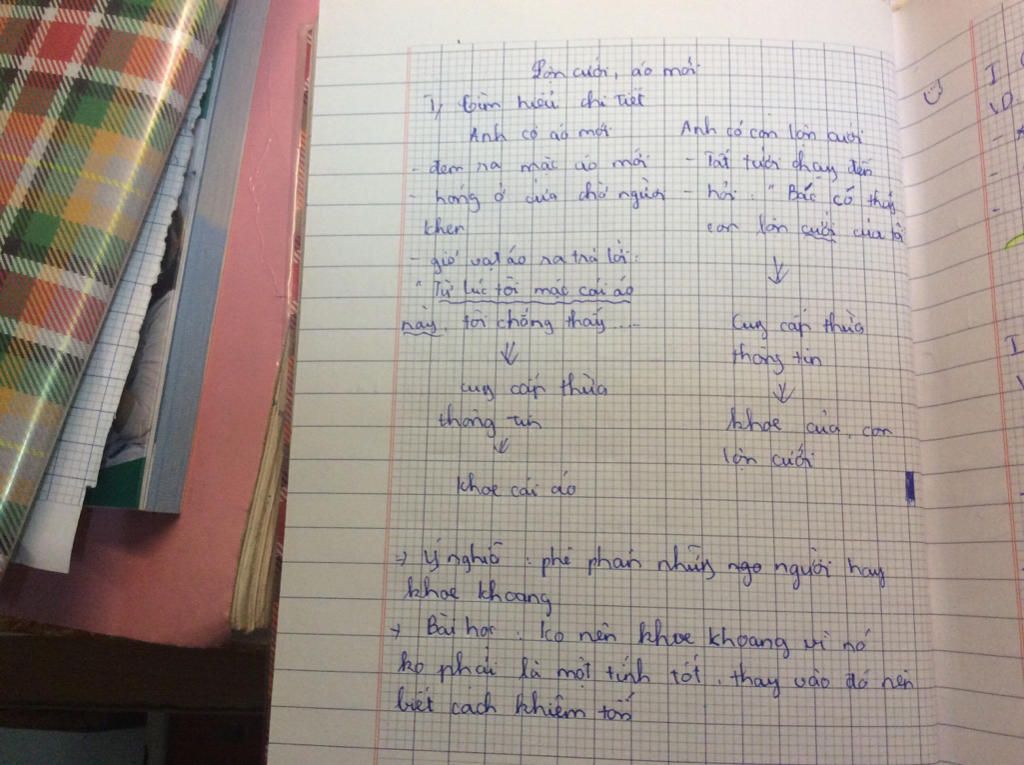 Lợn cưới, áo mới
I, Tìm hiểu chi tiết
Anh có áo mới
- đem ra mặc áo mới
- hóng ở cửa chờ người
khen
- giơ vạt áo ra trả lời:
" Từ lúc tôi mặc cái áo
này, tôi chẳng thấy ....
↓
cung cấp thừa
thông tin
↓
khoe cái áo
Anh có con lợn cưới
- Tất tưởi chạy đến
- hỏi : " Bác có thấy
con lợn cưới của tôi
↓
Cung cấp thừa
thông tin
↓
khoe của, con
lợn cưới
→ Ý nghĩa : phê phán những ngo người hay
khoe khoang
→ Bài học : ko nên khoe khoang vì nó
ko phải là một tính tốt, thay vào đó nên
biết cách khiêm tốn
I
VD
I